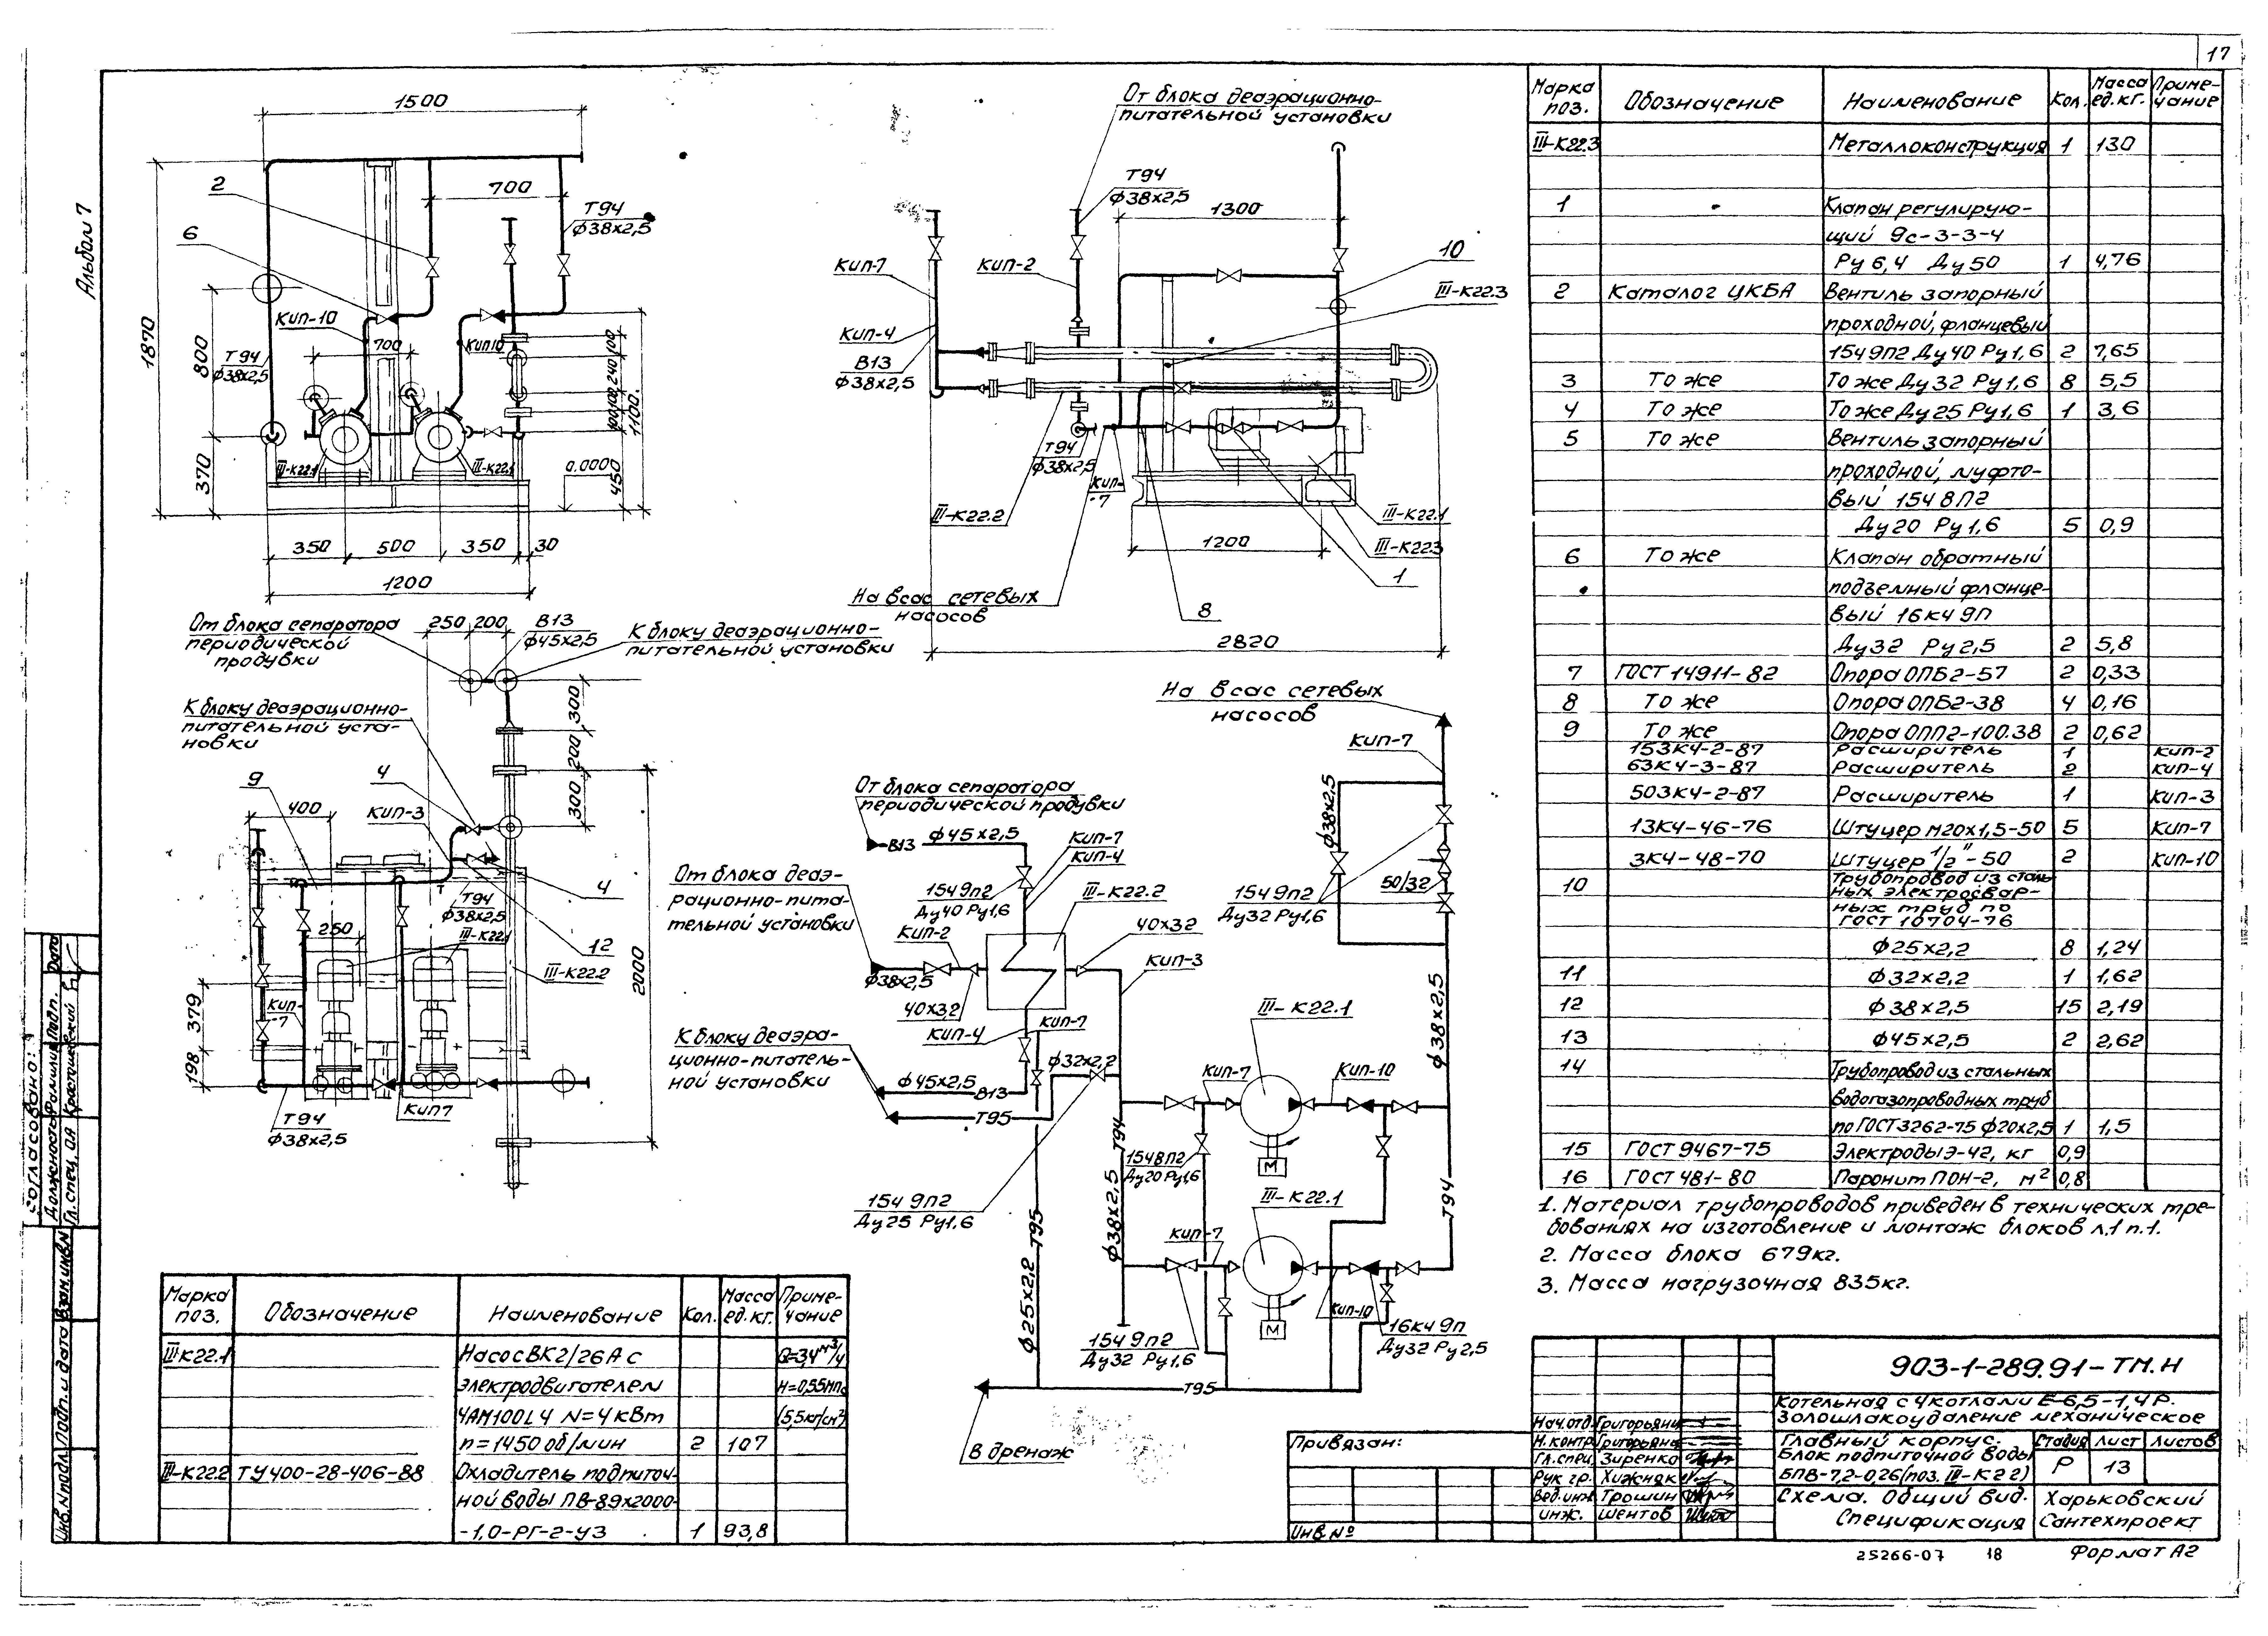 17
Альбом 7
1500
700
2
6
Т94
ф38х2,5
КИП-10
700
КИП10
Т94
ф38х2,5
1870
800
370
240
100
1100
450
0.000
III-К22.1
III-К22.1
350
500
350
30
1200
От блока деаэрационно-
питательной установки
Т94
ф38х2,5
1300
10
КИП-7
КИП-2
III-К22.3
КИП-4
В13
ф38х2,5
Т94
ф38х2,5
КИП-
7
III-К22.2
III-К22.1
1200
III-К22.3
1
На всас сетевых
насосов
8
2820
От блока сепаратора
периодической
продувки
250
200
В13
ф45х2,5
К блоку деаэрационно-
питательной установки
К блоку деаэрационно-
питательной уста-
новки
300
200
300
9
4
400
КИП-3
4
Т
Т94
ф38х2,5
250
III-К22.1
12
III-К22.2
2000
379
198
КИП-
7
Т94
ф38х2,5
КИП7
На всас сетевых
насосов
КИП-7
От блока сепаратора
периодической продувки
В13
ф45х2,5
КИП-7
КИП-4
ф38х2,5
От блока деаэ-
рационно-пита-
тельной установки
15ч 9п2
Ду40 Ру1,6
III-К22.2
15ч 9п2
Ду32 Ру1,6
50/32
КИП-2
40х32
ф38х2,5
40х32
КИП-3
КИП-4
КИП-7
К блоку деаэра-
ционно-питатель-
ной установки
ф32х2,2
III-К22.1
ф38х2,5
ф45х2,5
В13
Т95
КИП-7
КИП-10
Т94
15ч8П2
Ду20 Ру1,6
М
15ч 9п2
Ду25 Ру1,6
III-К22.1
ф38х2,5
Т95
ф25х2,2
КИП-7
Т94
М
КИП-10
15ч 9п2
Ду32 Ру1,6
16кч 9п
Ду32 Ру2,5
Т95
В дренаж
Марка
поз.
Обозначение
Наименование
Кол.
Масса
ед.кг.
Приме-
чание
III-К22.3 Металлоконструкция 1 130
1 Клапан регулирую-
щий 9с-3-3-4
Ру 6,4 Ду 50 1 4,76
2 Каталог ЦКБА Вентиль запорный
проходной, фланцевый
15ч 9п2 Ду40 Ру1,6 2 7,65
3 То же То же Ду 32 Ру1,6 8 5,5
4 То же То же Ду 25 Ру1,6 1 3,6
5 То же Вентиль запорный
проходной, муфто-
вый 15ч 8П2
Ду20 Ру1,6 5 0,9
6 То же Клапан обратный
подземный фланце-
вый 16кч 9п
Ду32 Ру2,5 2 5,8
7 ГОСТ 14911-82 Опора ОПБ2-57 2 0,33
8 То же Опора ОПБ2-38 4 0,16
9 То же Опора ОПП2-100.38 2 0,62
153К4-2-87 Расширитель 1 КИП-2
63К4-3-87 Расширитель 2 КИП-4
503К4-2-87 Расширитель 1 КИП-3
13К4-46-76 Штуцер М20х1,5-50 5 КИП-7
3К4-48-70 Штуцер 1/2"-50 2 КИП-10
10 Трубопровод из сталь
ных электросвар-
ных труб по
ГОСТ 10704-76
ф25х2,2 8 1,24
11 ф32х2,2 1 1,62
12 ф38х2,5 15 2,19
13 ф45х2,5 2 2,62
14 Трубопровод из стальных
водогазопроводных труб
по ГОСТ 3262-75 ф20х2,5 1 1,5
15 ГОСТ 9467-75 Электроды Э-42, кг 0,9
16 ГОСТ 481-80 Паронит ПОН-2, м² 0,8
1. Материал трубопроводов приведен в технических тре-
бованиях на изготовление и монтаж блоков л.1 п.1.
2. Масса блока 679кг.
3. Масса нагрузочная 835кг.
Марка
поз.
Обозначение
Наименование
Кол.
Масса
ед.кг.
Приме-
чание
III-К22.1 Насос ВК2/26А с Q=3,4м³/ч
электродвигателем Н=0,55МПа
4АМ100L4 N=4кВт (5,5кг/см²)
n=1450 об/мин 2 107
III-К22.2 ТУ400-28-406-88 Охладитель подпиточ-
ной воды ПВ-89х2000-
-1,0-РГ-2-У3 1 93,8
Согласовано:
Должность Фамилия Подп. Дата
Гл.спец. ОА
Взам.инв.N
Подп. и дата
Инв.N подл.
Привязан:
Инв.№
903-1-289.91-ТМ.Н
Котельная с 4 котлами Е-6,5-1,4Р.
Золошлакоудаление механическое
Нач.отд. Григорьянц
Н.контр. Григорьянц
Гл.спец. Зиренко
Рук гр. Хижняк
Вед.инж. Трошин
инж. Шентов
Главный корпус.
Блок подпиточной воды
БПВ-7,2-0,26(поз. III-К22)
Стадия Лист Листов
Р 13
Схема. Общий вид.
Спецификация
Харьковский
Сантехпроект
25266-07 18 Формат А2